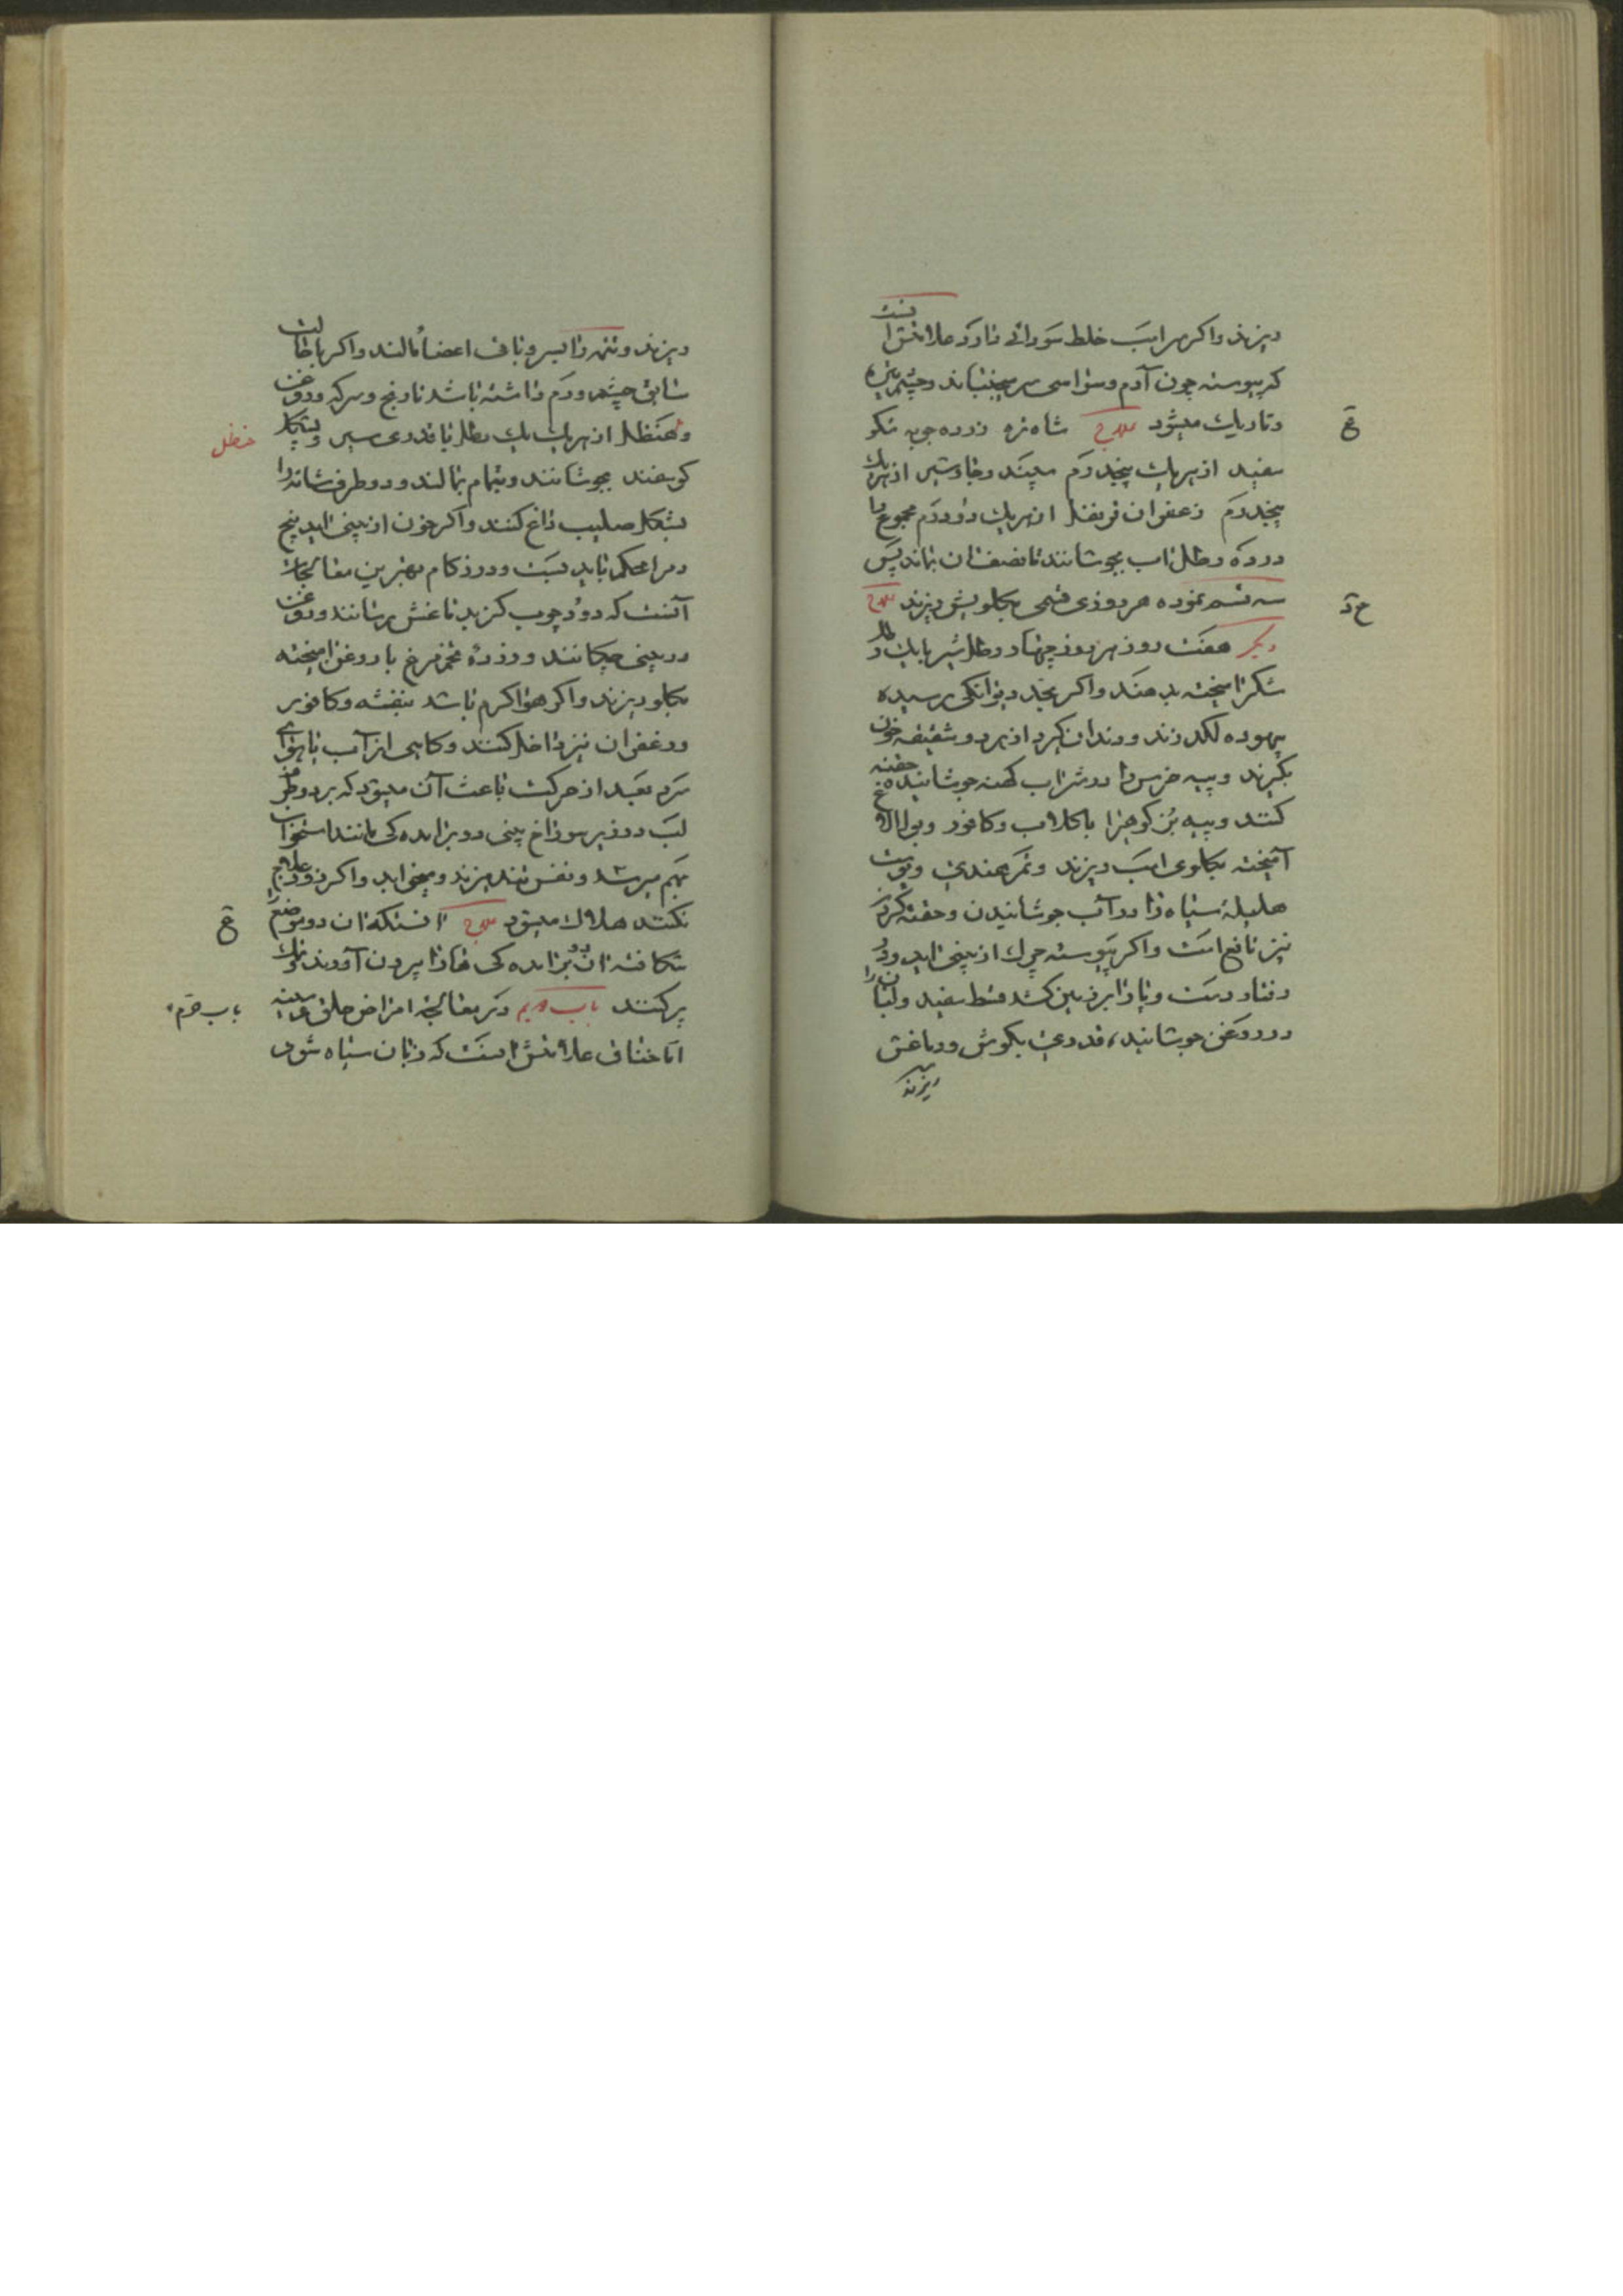 ریزند واگر سر اسب خلط سودائی دارد علامتش انست
که پیوسته چون آدم وسواسی سر میجنباند وچشم تیره
وتاریك میشود علاج شاه تره زرده جوبه شکر
سفید از هریك پنجدرم سپند وجاوشیر از هریك
پنجدرم زعفران قرنفل از هریك دودرم مجموع را
درده رطل اب بجوشانند تا نصف ان بماند پس
سه قسم نموده هر روزی قسمی بکلویش ریزند علاج
دیکر هفت روز هر روز چهار رطل شیر بایك رطل
شکر امیخته بدهند واکر بحد دیوانکی رسیده
بیهوده لکد زند ودندان کیرد از هر دو شقیقه خون
بکیرند وپیه خرس را در شراب کهنه جوشانیده حقنه
کنند وپیه بز کوهیرا باکلاب وکافور وبول الاغ
آمیخته بکلوی اسب ریزند وتمر هندی وپوست
هلیلۀ سیاه را در آب جوشانیدن وحقنه کردن
نیز نافع است واکر پیوسته چرك از بینی اید ودر
رفتار دست وپا را بر زمین کشد قسط سفید ولبان را
در روغن جوشانیده قدری بکوش ودماغش
ریزند
ع
ع د
ریزند وتتمه را بسر وباقی اعضا بمالند واکر باحالت
سابق چشم ورم داشته باشد نارنج وسرکه وروغن
وحنظل از هریك یك رطل با قدری سیر وپشکل
کوسفند بجوشانند وبتمام بمالند ودو طرف شانه را
بشکل صلیب داغ کنند واکر خون از بینی اید بیخ
دمرا محکم باید بست ودر زکام بهترین معالجات
آنست که دود چوب کز بدماغش برسانند وروغن
در بینی چکانند وزردۀ تخم مرغ با روغن امیخته
بکلو ریزند واکر هوا کرم باشد بنفشه وکافور
وزعفران نیز داخل کنند وکاهی از آب یا هوای
سرد بعد از حرکت باعث آن میشود که بر دو طرف
لب در زیر سوراخ بینی دو بر امده کی مانند استخوان
بهم میرسد ونفس تند میزند ومیخوابد واکر زود علاج
نکنند هلاك میشود علاج انستکه ان دو موضع را
شکافته ان دو بر امده کی هارا بیرون آورند ونمك
پر کنند باب دویم در معالجۀ امراض حلق وسینه
امّا خناق علامتش انست که زبان سیاه شود
حنظل
ع
باب دوّم